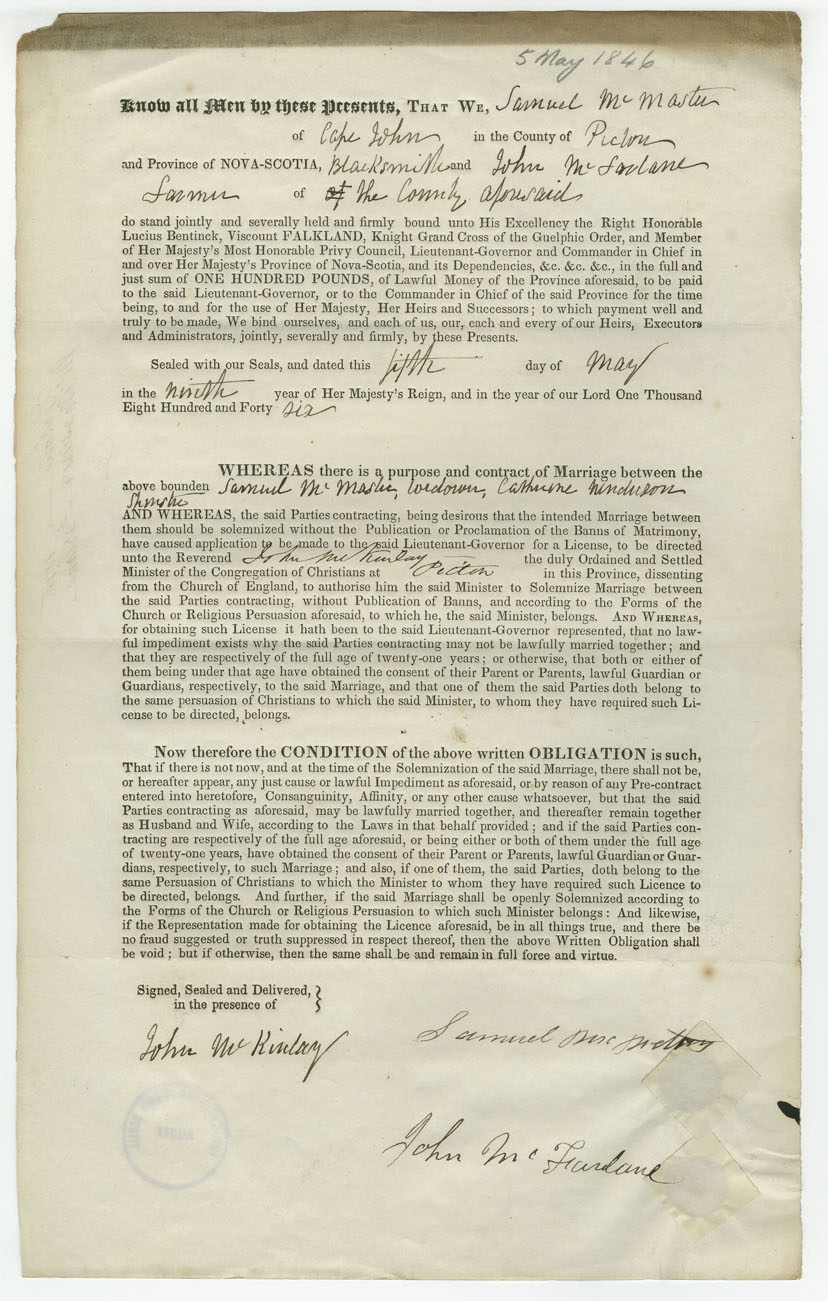 5 May 1846
Know all Men by these Presents, THAT WE, Samuel Mc Master
of Cape John in the County of Pictou
and Province of NOVA-SCOTIA, Blacksmith and John Mc Farlane
Farmer of of the County aforesaid
do stand jointly and severally held and firmly bound unto His Excellency the Right Honorable
Lucius Bentinck, Viscount FALKLAND, Knight Grand Cross of the Guelphic Order, and Member
of Her Majesty's Most Honorable Privy Council, Lieutenant-Governor and Commander in Chief in
and over Her Majesty's Province of Nova-Scotia, and its Dependencies, &c. &c. &c., in the full and
just sum of ONE HUNDRED POUNDS, of Lawful Money of the Province aforesaid, to be paid
to the said Lieutenant-Governor, or to the Commander in Chief of the said Province for the time
being, to and for the use of Her Majesty, Her Heirs and Successors; to which payment well and
truly to be made, We bind ourselves, and each of us, our, each and every of our Heirs, Executors
and Administrators, jointly, severally and firmly, by these Presents.
Sealed with our Seals, and dated this fifth day of May
in the ninth year of Her Majesty's Reign, and in the year of our Lord One Thousand
Eight Hundred and Forty six
WHEREAS there is a purpose and contract of Marriage between the
above bounden Samuel Mc Master, widower, Catherine Henderson
Spinster
AND WHEREAS, the said Parties contracting, being desirous that the intended Marriage between
them should be solemnized without the Publication or Proclamation of the Banns of Matrimony,
have caused application to be made to the said Lieutenant-Governor for a License, to be directed
unto the Reverend John Mc Kinlay the duly Ordained and Settled
Minister of the Congregation of Christians at Pictou in this Province, dissenting
from the Church of England, to authorise him the said Minister to Solemnize Marriage between
the said Parties contracting, without Publication of Banns, and according to the Forms of the
Church or Religious Persuasion aforesaid, to which he, the said Minister, belongs. AND WHEREAS,
for obtaining such License it hath been to the said Lieutenant-Governor represented, that no law-
ful impediment exists why the said Parties contracting may not be lawfully married together; and
that they are respectively of the full age of twenty-one years; or otherwise, that both or either of
them being under that age have obtained the consent of their Parent or Parents, lawful Guardian or
Guardians, respectively, to the said Marriage, and that one of them the said Parties doth belong to
the same persuasion of Christians to which the said Minister, to whom they have required such Li-
cense to be directed, belongs.
Now therefore the CONDITION of the above written OBLIGATION is such,
That if there is not now, and at the time of the Solemnization of the said Marriage, there shall not be,
or hereafter appear, any just cause or lawful Impediment as aforesaid, or by reason of any Pre-contract
entered into heretofore, Consanguinity, Affinity, or any other cause whatsoever, but that the said
Parties contracting as aforesaid, may be lawfully married together, and thereafter remain together
as Husband and Wife, according to the Laws in that behalf provided; and if the said Parties con-
tracting are respectively of the full age aforesaid, or being either or both of them under the full age
of twenty-one years, have obtained the consent of their Parent or Parents, lawful Guardian or Guar-
dians, respectively, to such Marriage; and also, if one of them, the said Parties, doth belong to the
same Persuasion of Christians to which the Minister to whom they have required such Licence to
be directed, belongs. And further, if the said Marriage shall be openly Solemnized according to
the Forms of the Church or Religious Persuasion to which such Minister belongs: And likewise,
if the Representation made for obtaining the Licence aforesaid, be in all things true, and there be
no fraud suggested or truth suppressed in respect thereof, then the above Written Obligation shall
be void; but if otherwise, then the same shall be and remain in full force and virtue.
Signed, Sealed and Delivered,
in the presence of
John Mc Kinlay
Samuel
John Mc Farlane